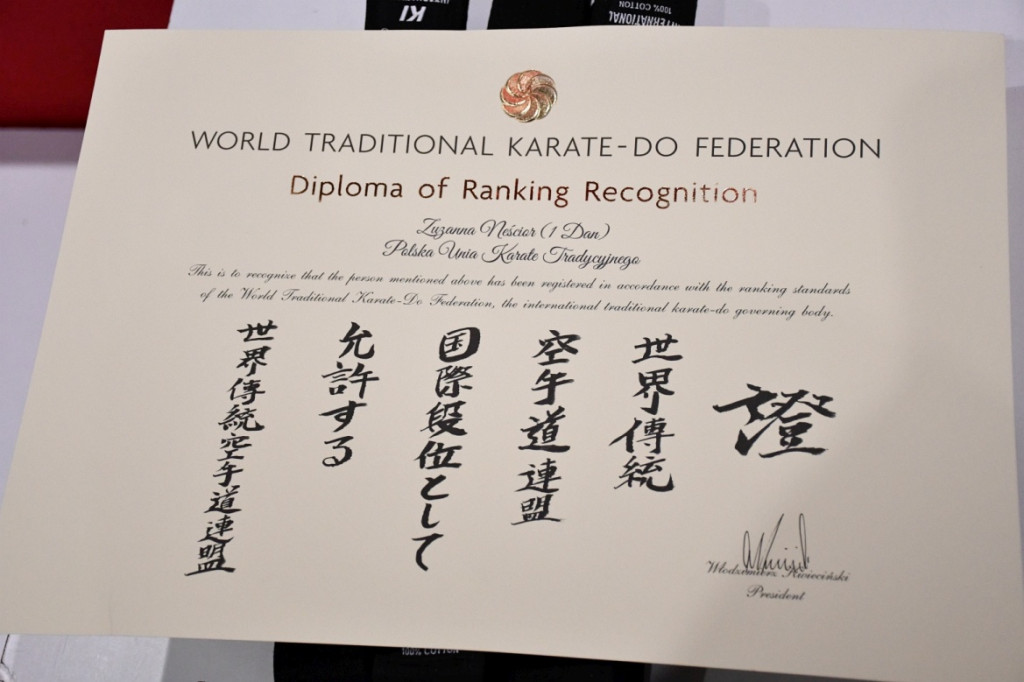 KI
INTERNATIONAL
100% COTTON
WORLD TRADITIONAL KARATE-DO FEDERATION
Diploma of Ranking Recognition
Zuzanna Neścior (1 Dan)
Polska Unia Karate Tradycyjnego
This is to recognize that the person mentioned above has been registered in accordance with the ranking standards
of the World Traditional Karate-Do Federation, the international traditional karate-do governing body.
證
世界傳統
空手道連盟
国際段位として
允許する
世界傳統空手道連盟
Włodzimierz Kwieciński
President
100% COTTON